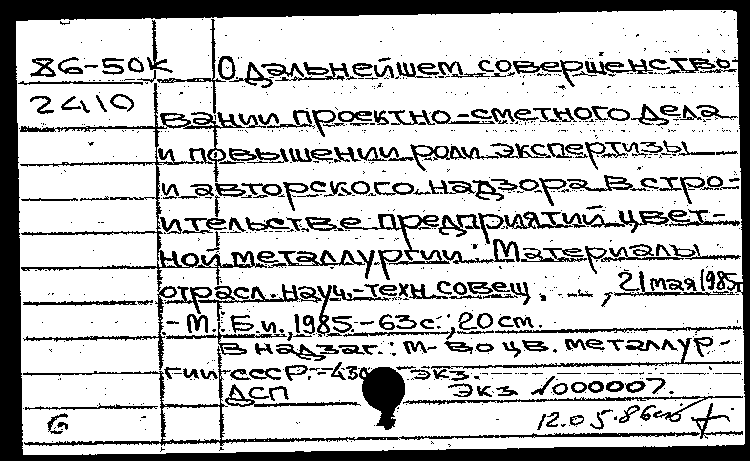 86-50к О дальнейшем совершенство-
2410
вании проектно-сметного дела
и повышении роли экспертизы
и авторского надзора в стро-
ительстве предприятий цвет-
ной металлургии: Материалы
отрасл. науч.-техн. совещ., ..., 21 мая 1985г
-М.: Б.и., 1985.-63с.; 20см.
В надзаг.: М-во цв. металлур-
гии СССР.-430 экз.
ДСП экз №000007.
6 12.05.86